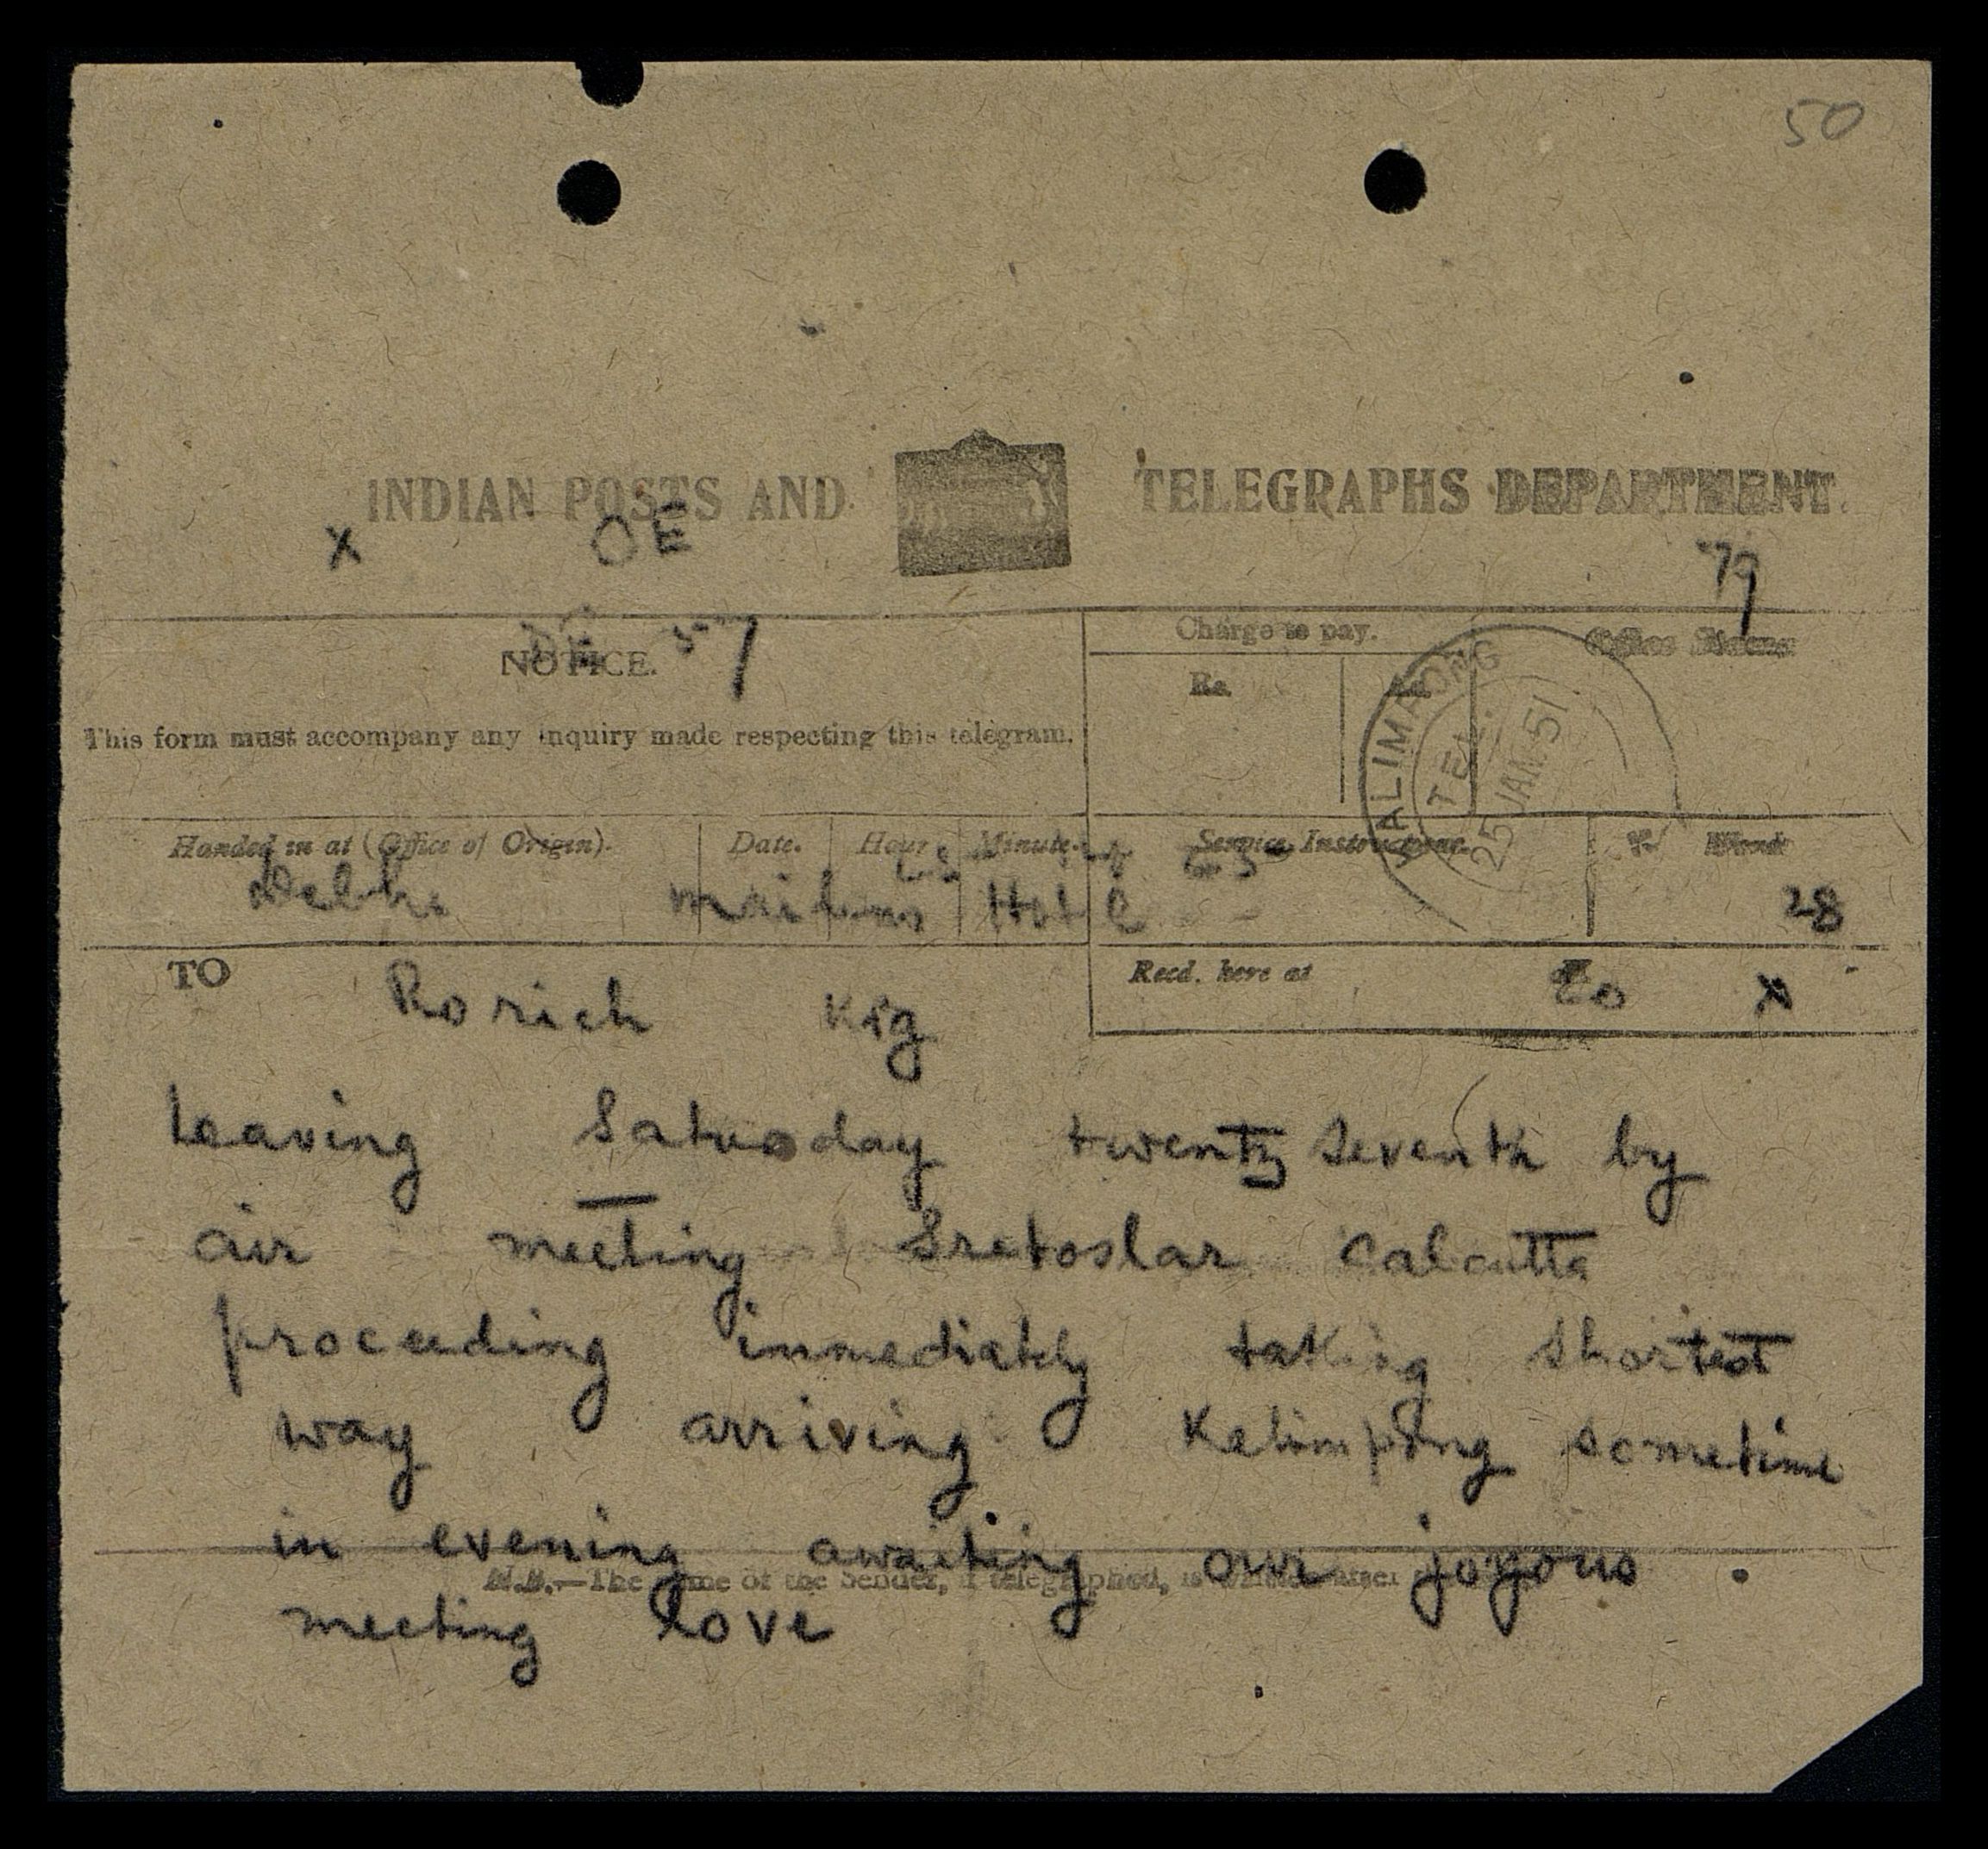 50
INDIAN POSTS AND TELEGRAPHS DEPARTMENT.
X OE 79
57
NOTICE.
Charge to pay.
Office Stamp
Rs.
This form must accompany any inquiry made respecting this telegram.
KALIMPONG
TEL.
25 JAN. 51
Handed in at (Office of Origin). Date. Hour. Minute. Service Instructions. Words
Delhi Hotel 28
TO Rorich Kig
Recd. here at X
Leaving Saturday twenty seventh by
air meeting Sretoslar Calcutta
proceeding immediately taking shortest
way arriving Kalimpong sometime
in evening awaiting our joyous
N.B.—The name of the Sender, if telegraphed, is written after
meeting love